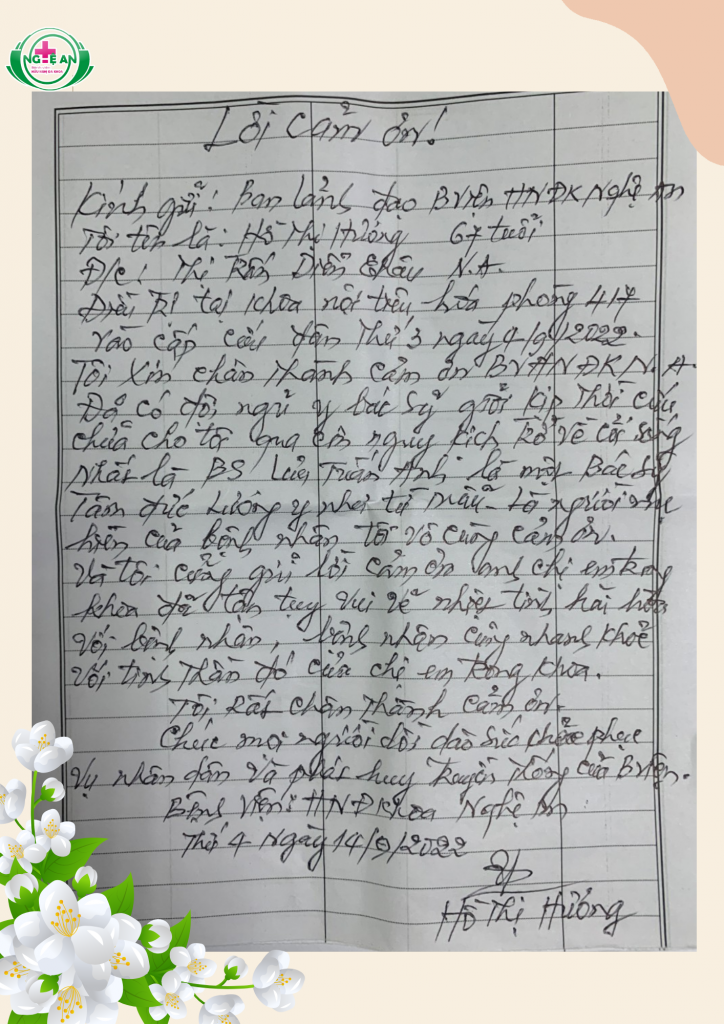 NGHỆ AN
Lời cảm ơn!
Kính gửi! Ban lảnh đạo BViện HNĐK Nghệ An
Tôi tên là: Hồ Thị Hường 67 tuổi
Đ/c! Thị Trấn Diễn Châu N.A.
Điều Trị tại khoa nội tiêu hóa phòng 417
vào cấp cứu đêm Thứ 3 ngày /9/2022.
Tôi Xin chân thành cảm ơn BVHNĐKN.A.
Đả có đội ngủ y bác sỹ giỏi kịp thời cứu
chửa cho tôi qua cơn nguy kịch trở về cỏi sống
Nhất là BS Lưu Tuấn Anh là một Bác sỹ
Tâm đức Lương y như từ mẫu - Là người mẹ
hiền của bệnh nhân tôi vô cùng cảm ơn.
Và tôi cũng gửi lời cảm ơn anh chị em trong
khoa đã tận tụy vui vẽ nhiệt tình hài hòa
với bệnh nhân, bệnh nhân cũng nhanh khoẻ
với tinh thần đó của chị em trong khoa.
Tôi rất chân thành cảm ơn.
Chúc mọi người dồi dào sức khỏe phục
vụ nhân dân và phát huy truyền thống của BViện.
Bệnh viện: HNĐKhoa Nghệ An
Thứ 4 ngày 14/9/2022
Hồ Thị Hường